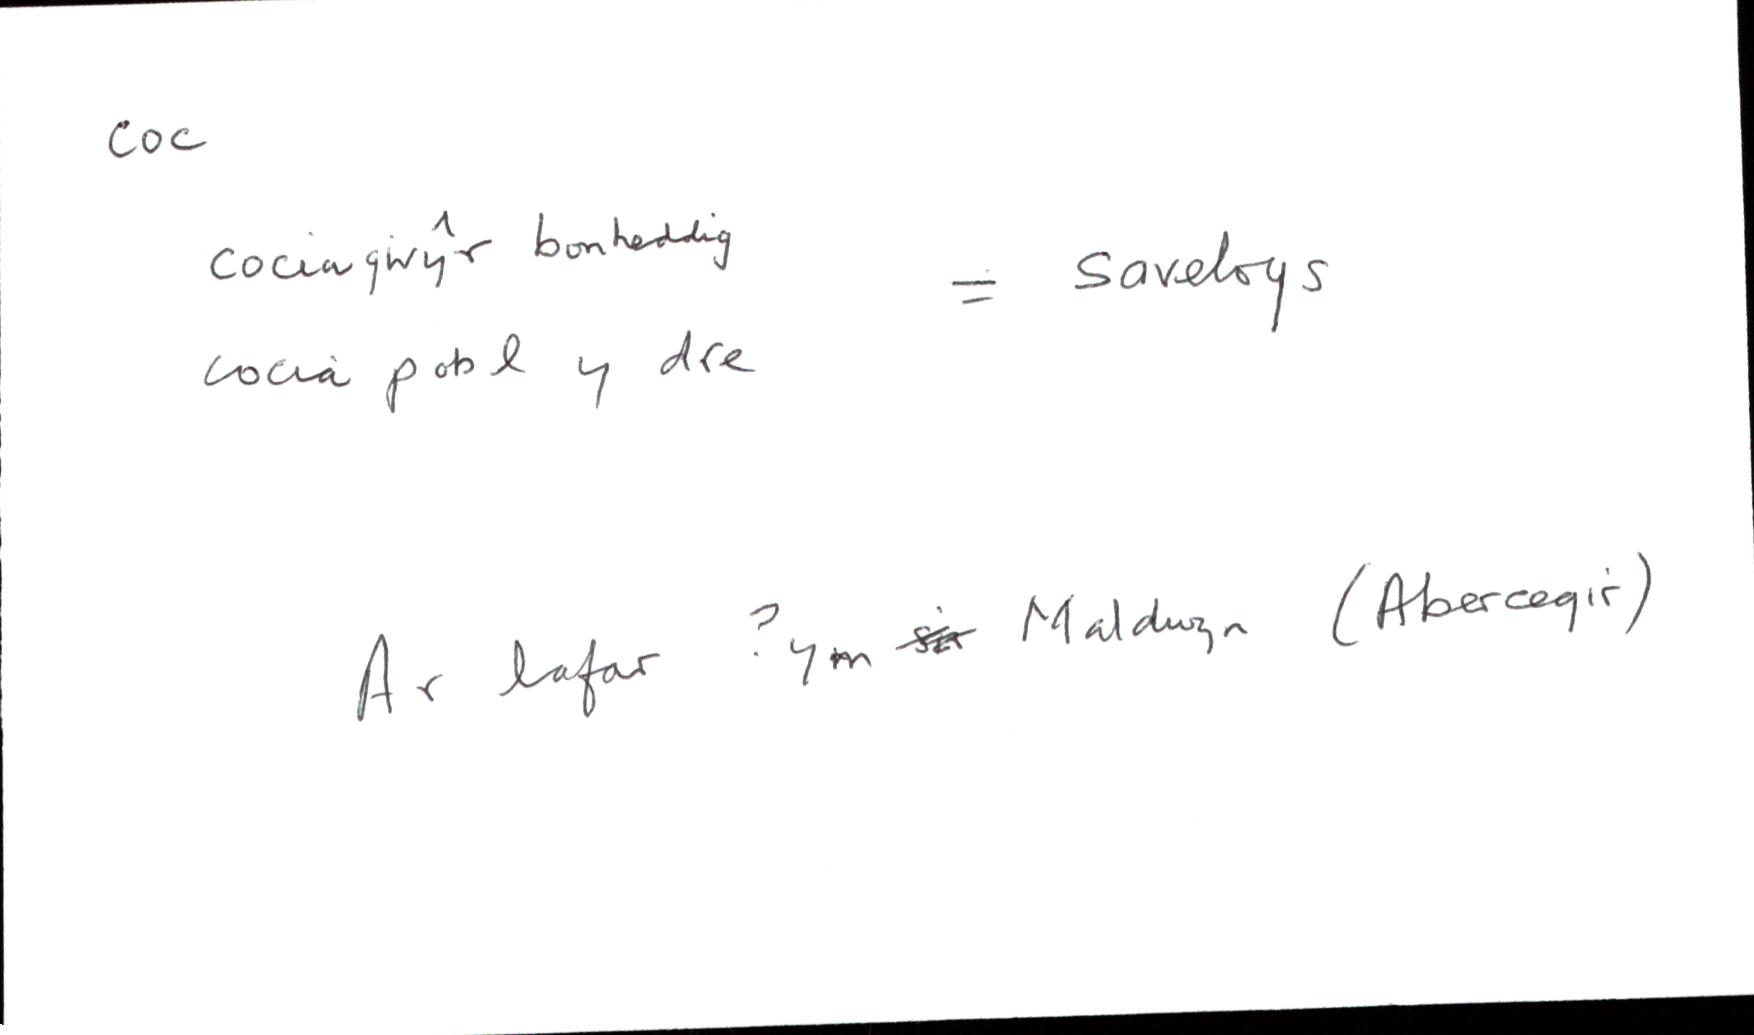 coc
cocia gwŷr bonheddig = saveloys
cocia pobl y dre
Ar lafar ?ym sir Maldwyn (Abercegir)